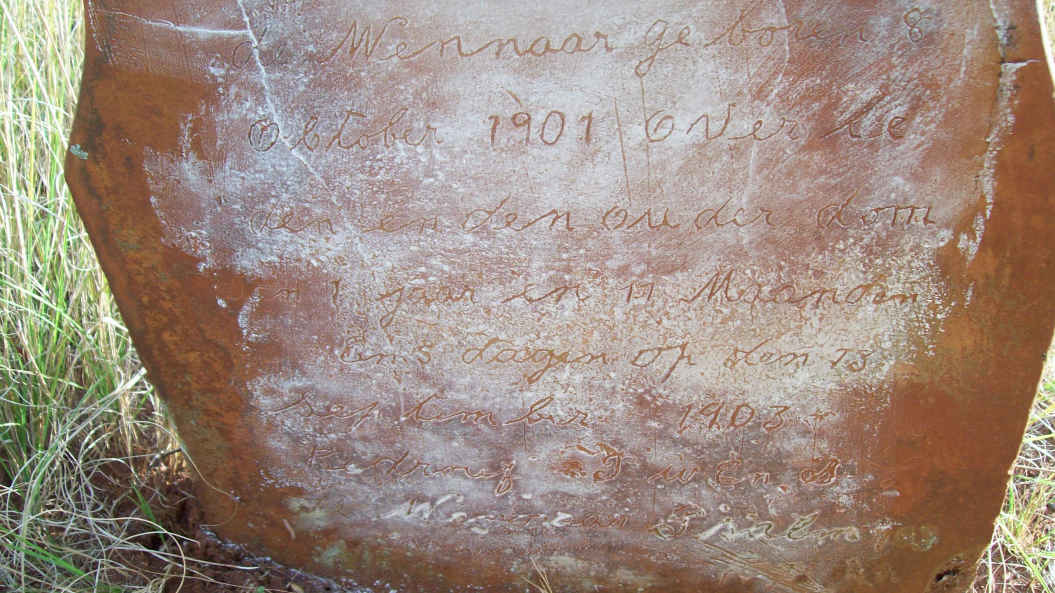 de Wennaar ge boren 8
October 1901 over le
den en den ou der dom
in 1 jaar en 11 Maanden
En 5 dagen op den 13
September 1903
D W En B
Wennaar Psalm